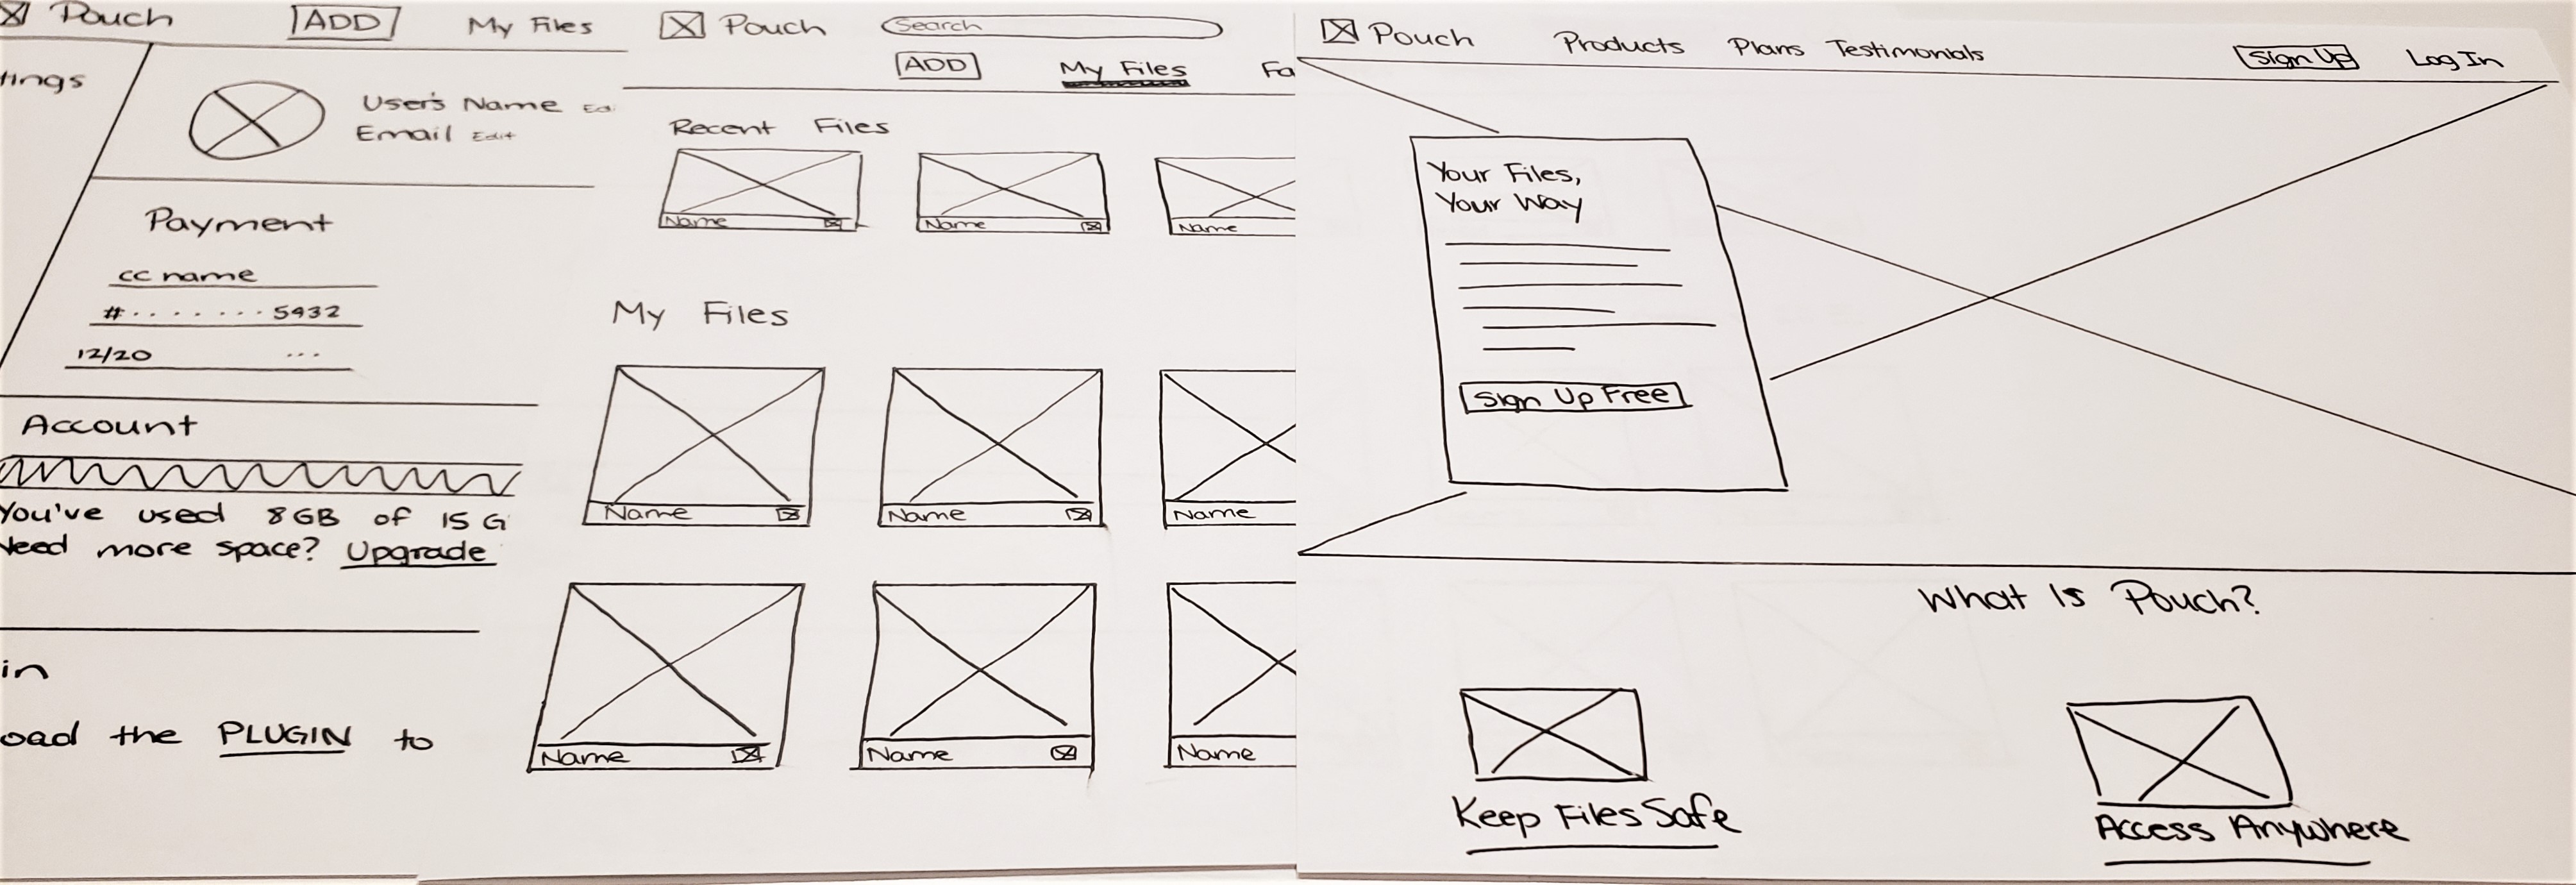 Pouch ADD My Files
tings
User's Name Ed
Email Edit
Payment
cc name
# . . . . . . . 5432
12/20 ...
Account
You've used 8GB of 15 G
Need more space? Upgrade
in
oad the PLUGIN to
Pouch Search
ADD My Files Fa
Recent Files
Name Name Name
My Files
Name Name Name
Name Name Name
Pouch Products Plans Testimonials Sign Up Log In
Your Files,
Your Way
Sign Up Free
What Is Pouch?
Keep Files Safe
Access Anywhere